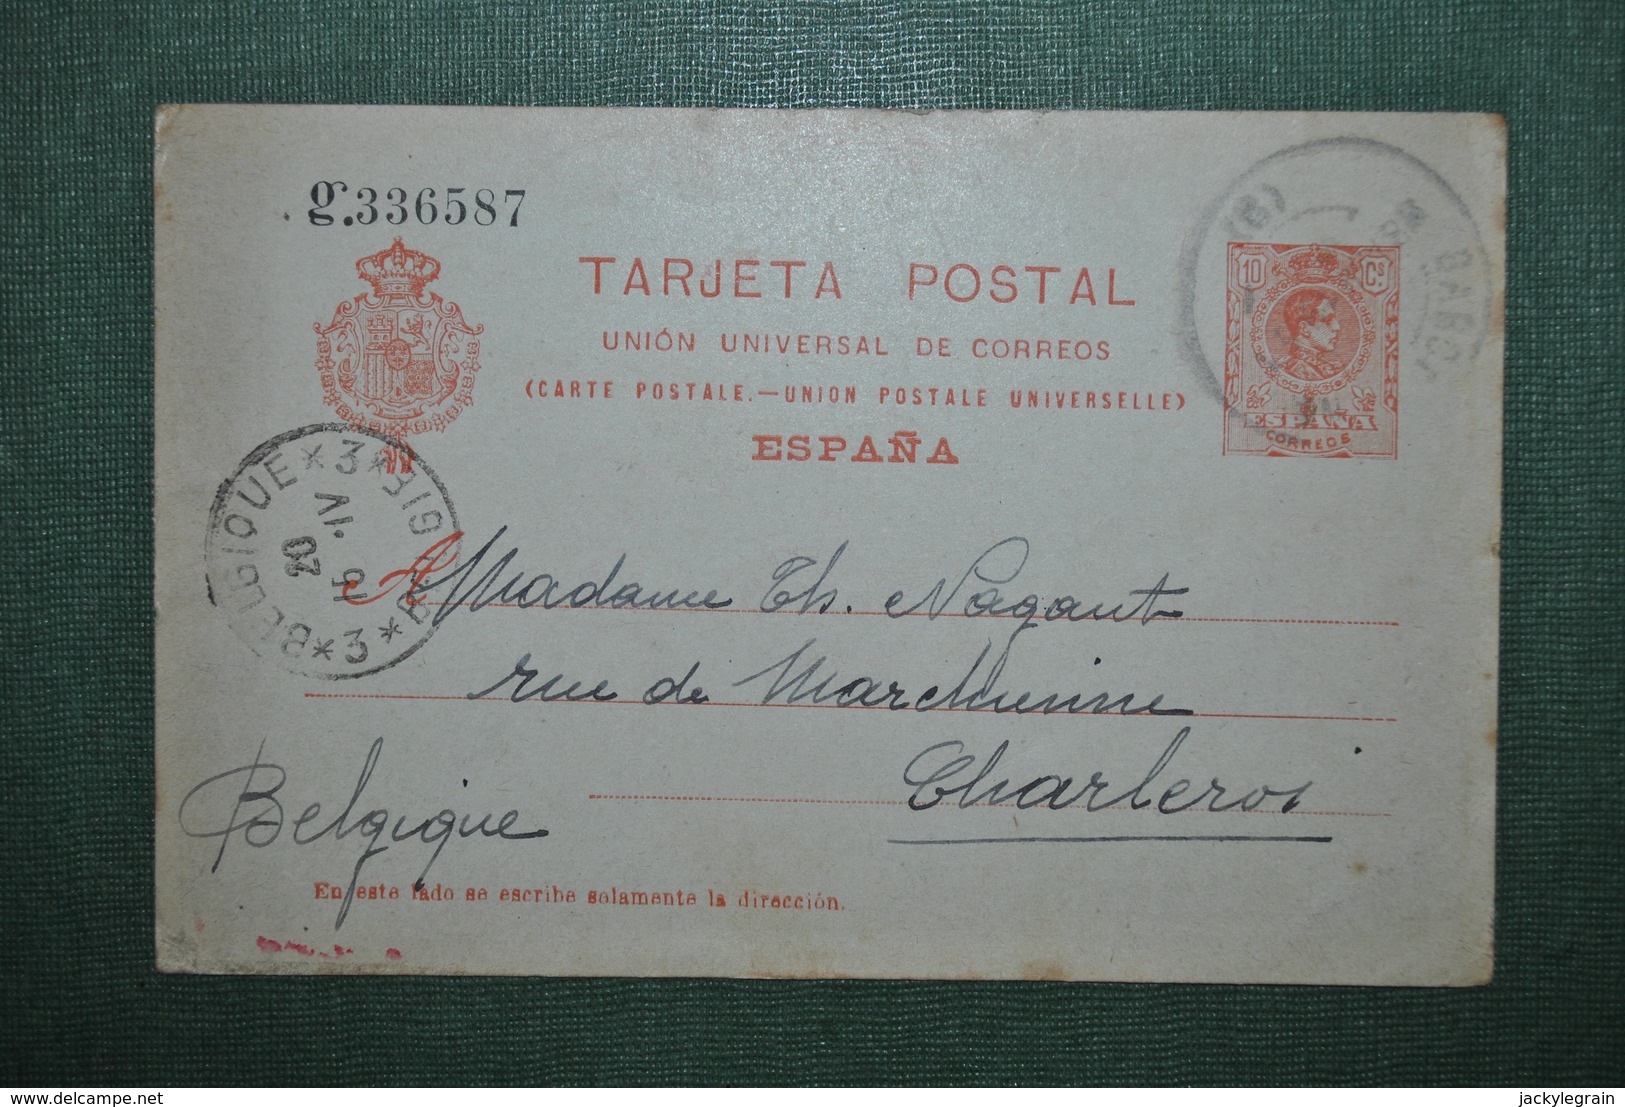 g.336587
TARJETA POSTAL
UNIÓN UNIVERSAL DE CORREOS
(CARTE POSTALE.—UNION POSTALE UNIVERSELLE)
ESPAÑA
10 Cs
ESPAÑA
CORREOS
(6)
BELGIQUE * 3 * BELG * 3 *
IV
20
A Madame Th. Nagant
rue de Marchienne
Charleroi
Belgique
En este lado se escribe solamente la dirección.
jackylegrain